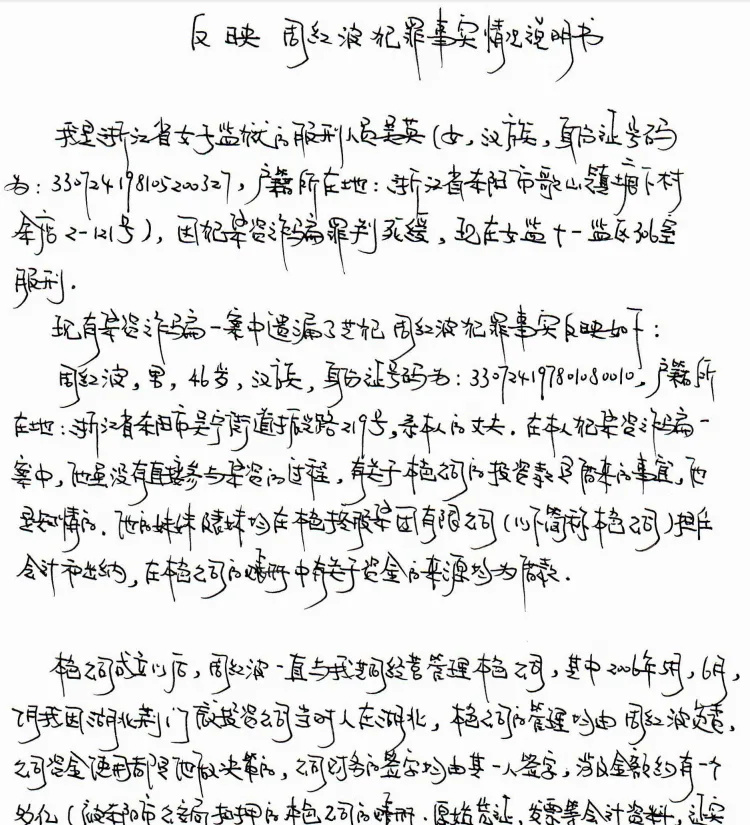 反映周红波犯罪事实情况说明书
我是浙江省女子监狱的服刑人员吴英(女,汉族,身份证号码
为:330724198105200327,户籍所在地:浙江省东阳市歌山镇塘下村
余店2-121号),因犯集资诈骗罪判死缓,现在女监十一监区306室
服刑.
现有集资诈骗一案中遗漏了共犯周红波犯罪事实反映如下:
周红波,男,46岁,汉族,身份证号码为:330724197801080010,户籍所
在地:浙江省东阳市吴宁街道振兴路219号,系本人的丈夫.在本人犯集资诈骗一
案中,他虽没有直接参与集资的过程,有关于本色公司的投资款是借来的事宜,他
是知情的.他的妹妹 妹均在本色控股集团有限公司(以下简称本色公司)担任
会计和出纳,在本色公司的账册中有关于资金的来源均为借款.
本色公司成立以后,周红波一直与我共同经营管理本色公司,其中2006年5月,6月,
7月我因湖北荆门 投资公司当时人在湖北,本色公司的管理均由周红波负责,
公司资金使用都是他做决策的,公司财务的签字均由其一人签字,涉及金额约有一个
多亿(被东阳市公安局扣押的本色公司的账册.原始凭证,发票等会计资料,证实